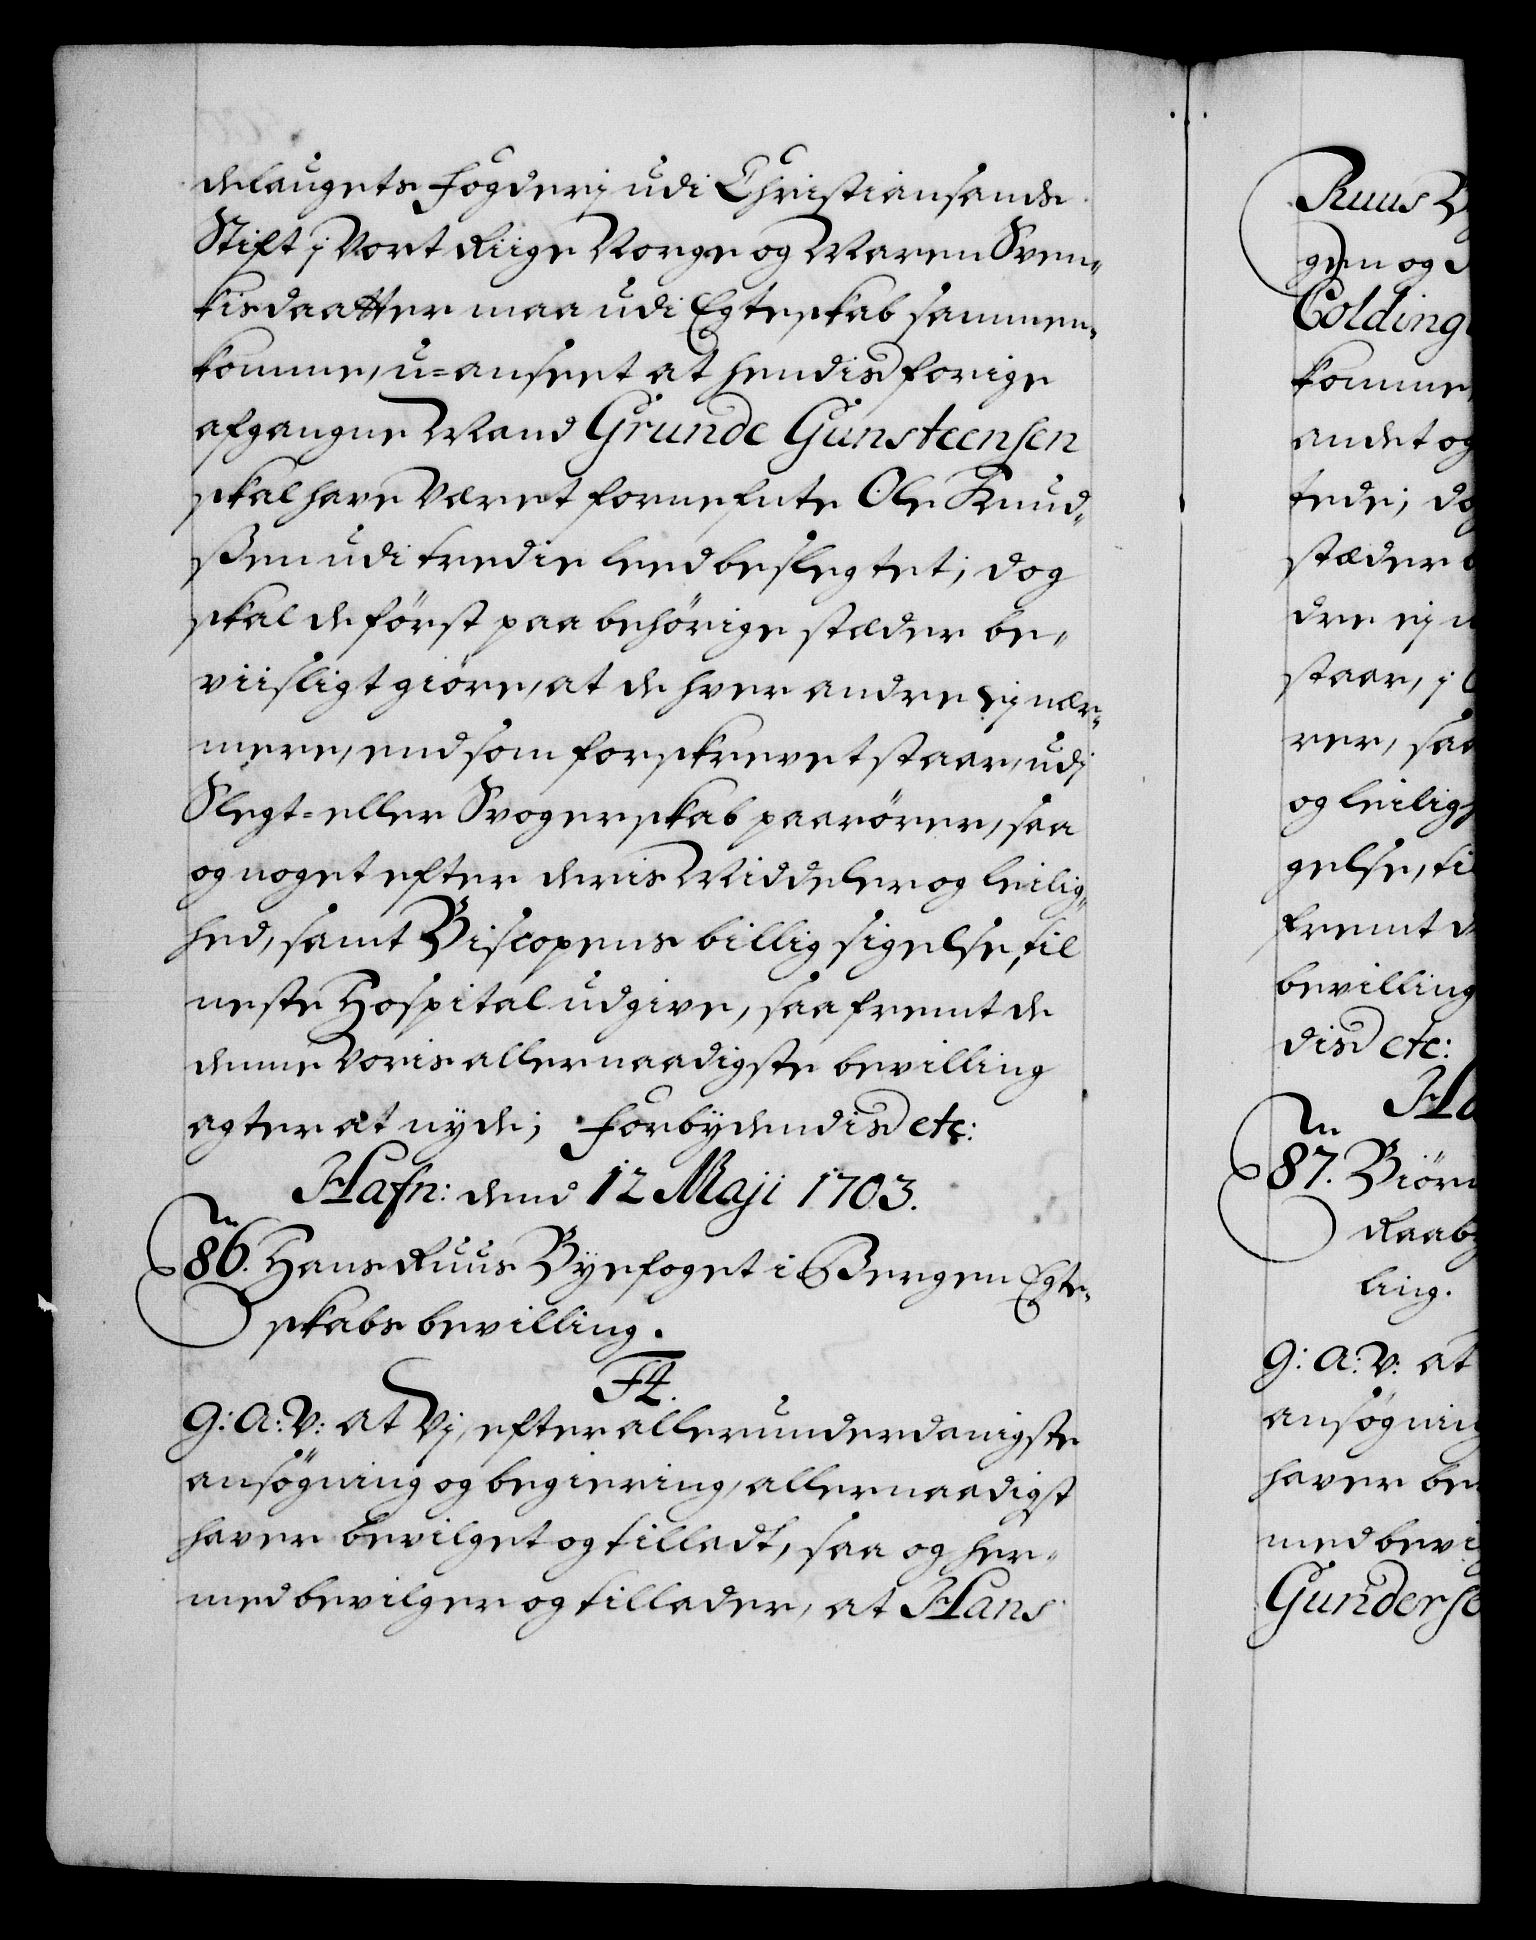 delaugets Fogderj udi Christiansands
Stift j Vort Riige Norge og Maren Sven„
kisdaatter maa udi Egteskab sammen„
komme, u=anseet at hendis forige
afgangne Mand Grunde Gunsteensen
skal have været fornefnte Ole Knud„
ßen udi tredie leed beslegtet; dog
skal de først paa behörige stæder be„
viisligt giöre, at de hver andre ej nær„
mere, end som forskrevet staar, udj
Slegt= eller Svogerskab paarörer, saa
og noget efter deris Middeler og leilig„
hed, samt Biscopens billig sigelse, til
neste Hospital udgive, saafremt de
denne Voris allernaadigste bevilling
agter at nyde; Forbydendis etc:
Hafn: dend 12 Maji 1703.
N
86. Hans Ruus Byefoget i Bergen Egte„
skabs bevilling.
F4.
G: A: V: at Vj, efter allerunderdanigste
ansögning og begiering, allernaadigst
haver bevilget og tilladt, saa og her„
med bevilger og tillader, at Hans
Ruus
gen og
Colding
komme,
andet og
tede;
stæder
dre ej
staar, j
rer, saa
og leilig
gelse, til
fremt
bevilling
dis etc:
Ha
N
87. Biörn
Raab
ling.
G: A: V: at
ansögning
haver be
med bevi
Gunderse